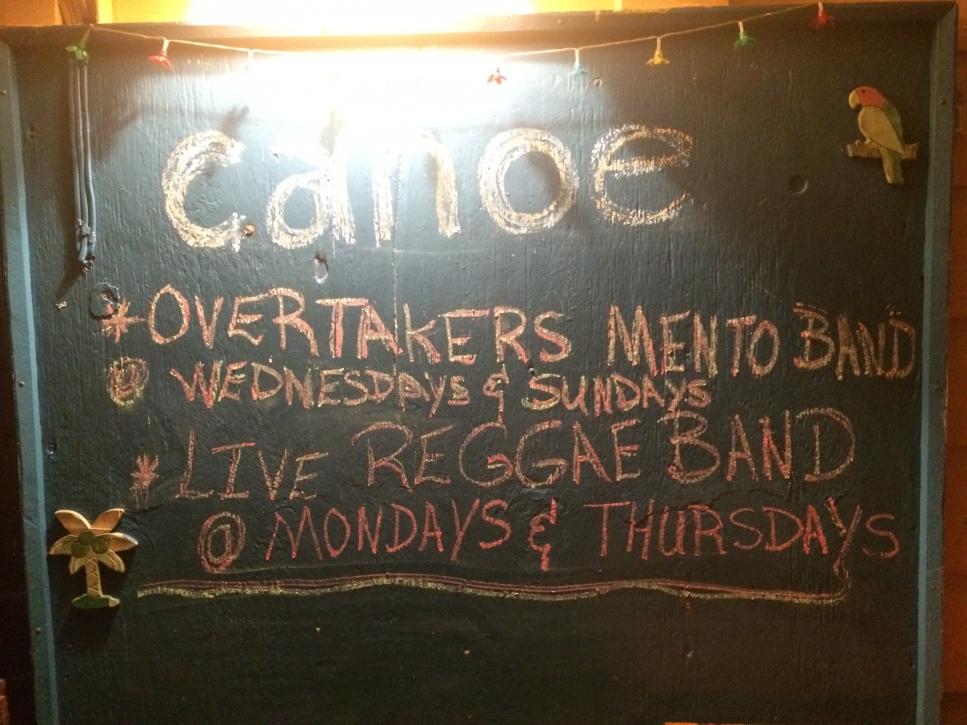 canoe
* OVERTAKERS MENTO BAND
@ WEDNESDAYS & SUNDAYS
* LIVE REGGAE BAND
@ MONDAYS & THURSDAYS